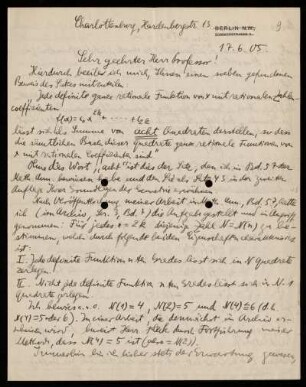 Charlottenburg, Hardenbergstr. 13.
BERLIN N.W.
17.6.05
Sehr geehrter Herr Professor!
Hierdurch beeile ich mich, Ihnen einen soeben gefundenen
Beweis des Satzes mitzuteilen:
"Jede definite ganze rationale Funktion von x mit rationalen Zahlen-
coeffizienten
lässt sich als Summe von acht Quadraten darstellen, so dass
die sämtlichen Basen dieser Quadrate ganze rationale Funktionen von
x mit rationalen Coeffizienten sind"
Das Wort "acht" ist das der Satz, den ich in Bd. 57 der
Math. Ann. bewiesen habe und den Sie in der zweiten
Auflage Ihrer Grundlagen der Geometrie erwähnen.
Nach Veröffentlichung meiner Arbeit in Math. Ann., Bd. 57, hatte
ich (im Archiv, Ser. 3, Bd. 7) die Aufgabe gestellt und in Angriff
genommen: Für jedes n = 2k diejenige Zahl N = N(n) zu be-
stimmen, welche durch folgende beiden Eigenschaften charakterisiert
ist:
I. Jede definite Funktion nten Grades lässt sich in N Quadrate
zerlegen.
II. Nicht jede definite Funktion nten Grades lässt sich in N-1
Quadrate zerlegen.
Ich bewies u.a. N(2) = 4, N(2) = 5 und N(4) ≦ 6 (d.h.
N(4) = 5 oder 6). In einer Arbeit, die demnächst im Archiv er-
scheinen wird, beweist Herr Fleck durch Fortführung meiner
Methode, dass N(4) = 5 ist
Immerhin bin ich bisher stets der Erwartung gewesen